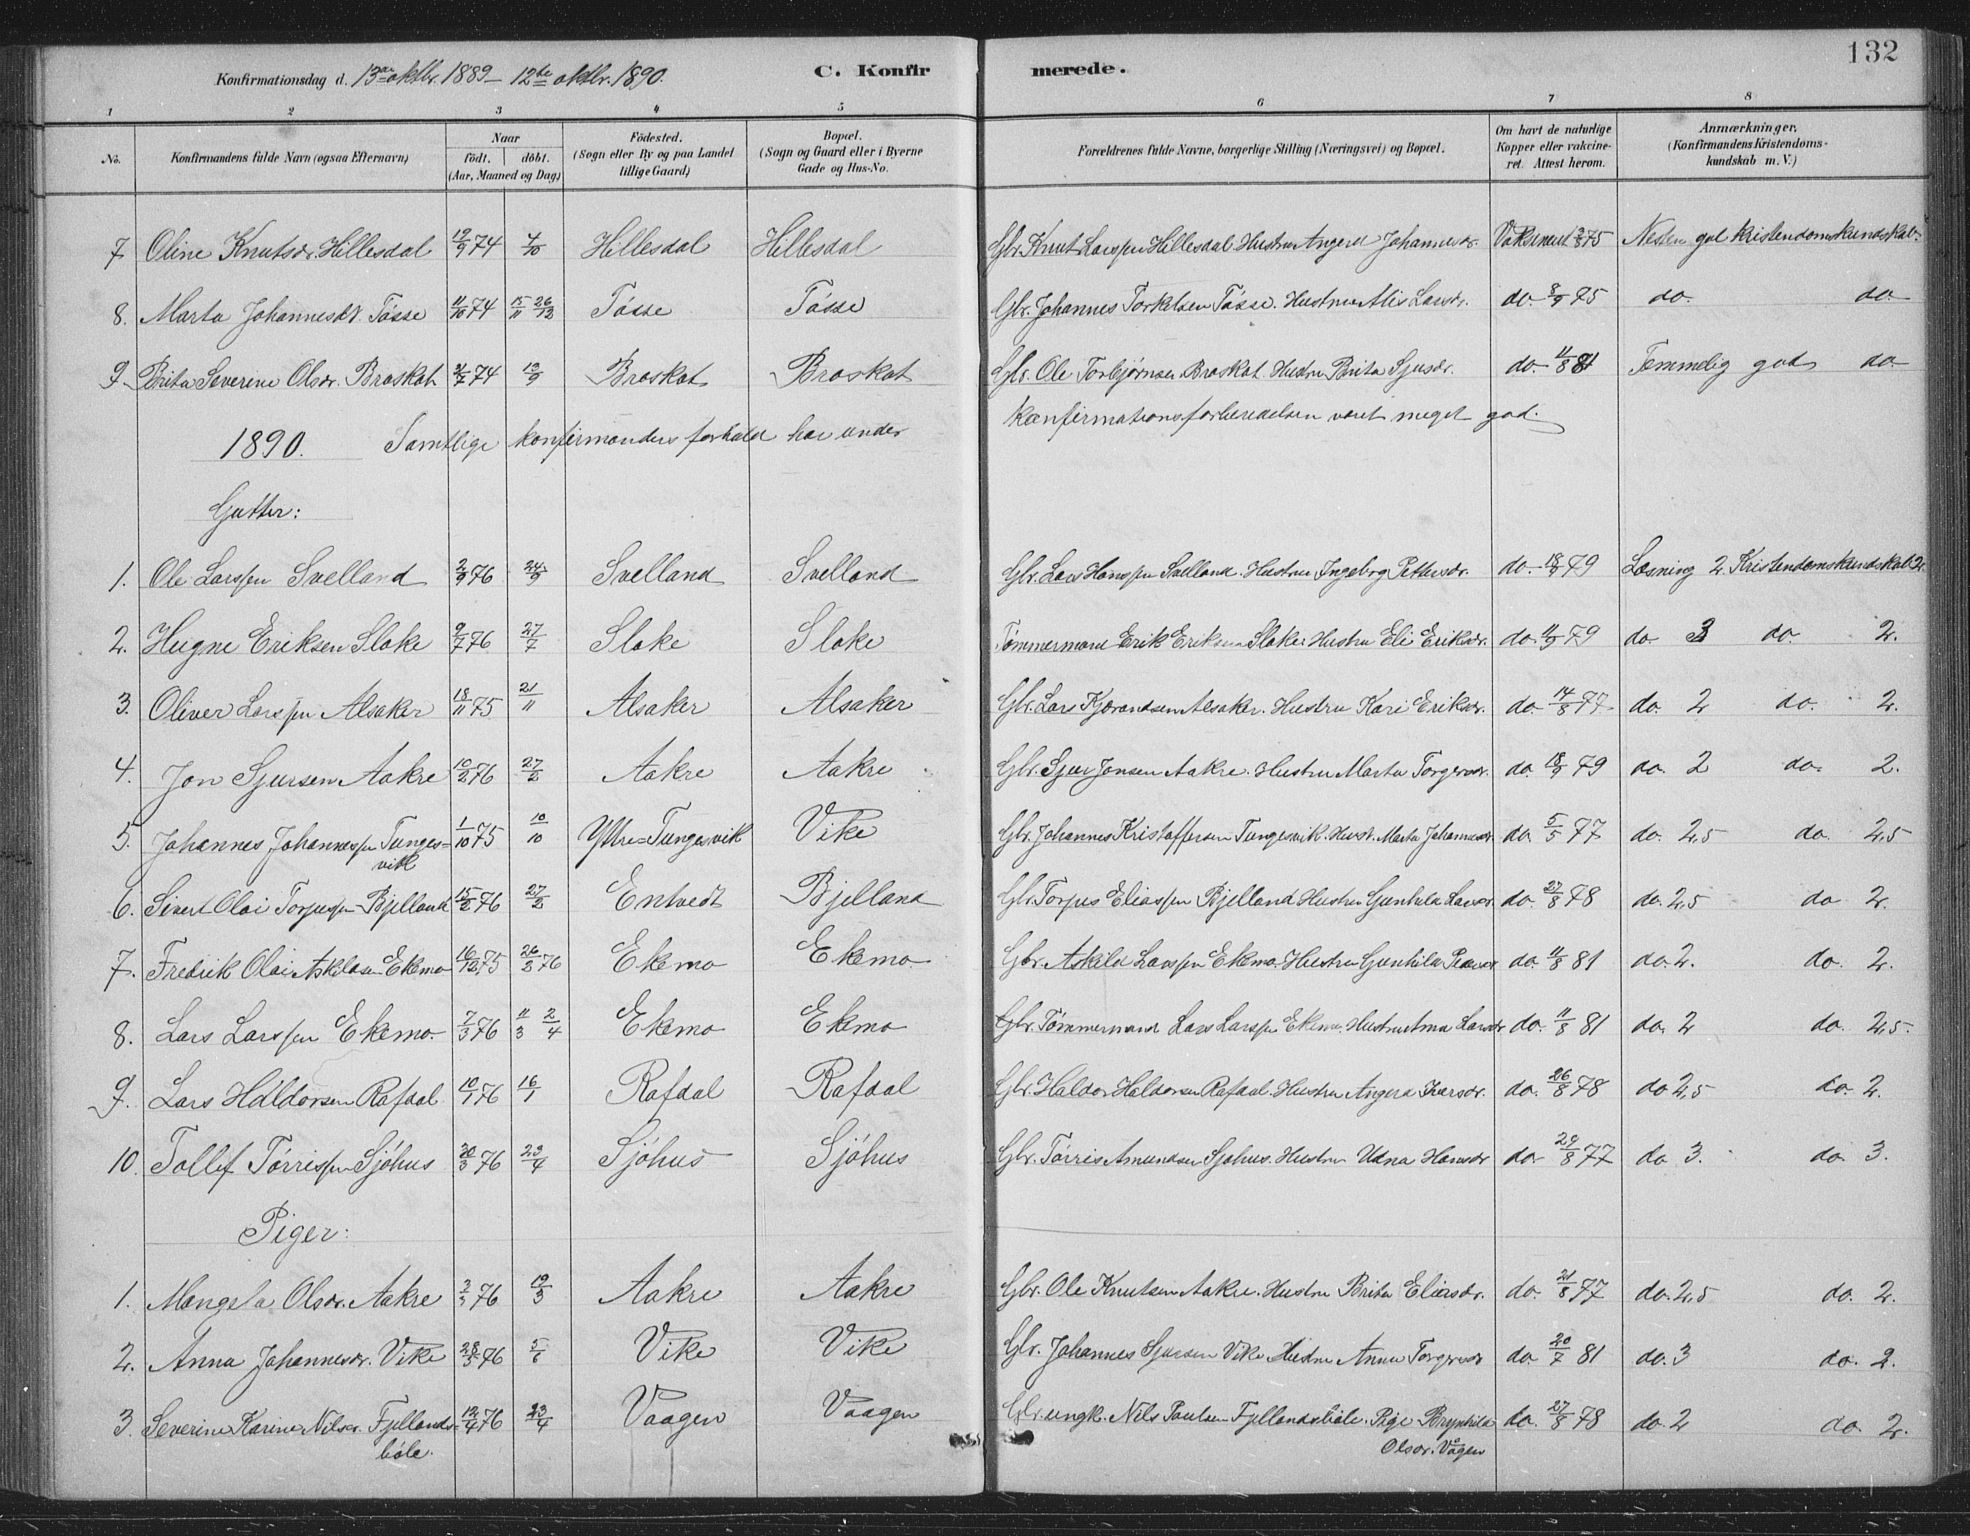 132
Konfirmationsdag d. 13de oktbr. 1889 – 12te oktbr. 1890. C. Konfirmerede.
1 2 3 4 5 6 7 8
No. Konfirmandens fulde Navn (ogsaa Efternavn) Naar födt. döbt. (Aar, Maaned og Dag) Födested. (Sogn eller By og paa Landet tillige Gaard) Bopæl. (Sogn og Gaard eller i Byerne Gade og Hus-No. Forældrenes fulde Navne, borgerlige Stilling (Næringsvei) og Bopæl. Om havt de naturlige Kopper eller vakcineret. Attest herom. Anmærkninger. (Konfirmandens Kristendomskundskab m. V.)
7 Oline Knutsdr. Hillesdal 19/9 74 4/10 Hillesdal Hillesdal Gbr. Knut Larssen Hillesdal Hustru Angera Johannesdr. Vaksineret 3/8 75 Nesten god Kristendomskundskab
8. Marta Johannesdt. Tösse 11/10 74 15/11 26/12 Tösse Tösse Gbr. Johannes Torkelsen Tösse. Hustru Alis Larsdr. do. 8/9 75 do. do
9. Brita Severine Olsdr. Braskat 21/7 74 13/9 Braskat Braskat Gbr. Ole Torbjørnsen Braskat. Hustru Brita Sjursdr. do. 11/8 81 Temmelig god do.
1890. Samtlige konfirmanders forhold har under konfirmationsforberedelsen været meget god.
Gutter:
1. Ole Larssen Svelland 2/9 76 24/9 Svelland Svelland Gbr. Lars Hanssen Svelland. Hustru Ingebrg Pettersdr. do. 18/9 79 Læsning 2. Kristendomskundskab 2.
2. Hugne Eriksen Sloke 9/7 76 27/7 Sloke Sloke Tømmermand Erik Eriksen Sloke. Hustru Eli Eriksdr. do. 11/9 79 do 3 do 2.
3. Oliver Larssen Alsaker 18/11 75 21/11 Alsaker Alsaker Gbr. Lars Kjærandsen Alsaker. Hustru Kari Eriksdr. do. 14/8 77 do. 2 do. 2.
4. Jon Sjursen Aakre 10/2 76 27/2 Aakre Aakre Gbr. Sjur Jonsen Aakre. Hustru Marta Torgersdr. do. 18/9 79 do. 2 do. 2.
5. Johannes Johannessen Tunges= 1/10 75 10/10 Yttre=Tungesvik Vike Gbr. Johannes Kristoffersen Tungesvik. Hust. Marta Johannesdr do. 5/5 77 do. 2,5 do. 2,5
vik
6. Sivert Olai Torpessen Bjelland 15/2 76 27/2 Entvedt Bjelland Gbr. Torpes Eliassen Bjelland Hustru Gunhild Larsdr. do. 27/8 78 do. 2,5 do 2.
7. Fredrik Olai Askildsen Ekemo 16/12 75 26/2 76 Ekemo Ekemo Gbr. Askild Larssen Ekemo. Hustru Gunhild do. 11/8 81 do. 2. do. 2.
8. Lars Larssen Ekemo. 7/3 76 11/3 2/4 Ekemo Ekemo Gbr. Tømmermand Lars Larssen Ekemo. Hustru Larsdr do. 11/8 81 do. 2 do. 2,5.
9. Lars Haldorsen Rafdal 10/1 76 16/1 Rafdal Rafdal Gbr. Haldor Haldorsen Rafdal. Hustru Angera Ivarsdr. do. 26/8 78 do 2,5 do. 2.
10. Tollef Tørrissen Sjöhus 20/3 76 23/4 Sjöhus Sjöhus Gbr. Tørris Amundsen Sjøhus. Hustru Udna Hansdr do. 29/8 77 do 3. do. 3.
Piger:
1. Mangela Olsdr. Aakre 3/3 76 19/3 Aakre Aakre Gbr. Ole Knutsen Aakre. Hustru Brita Eliasdr. do. 21/8 77 do. 2,5 do. 2.
2. Anna Johannesdr. Vike 28/5 76 5/6 Vike Vike Gbr. Johannes Sjursen Vike Hustru Anna Torgersdr do. 20/7 81 do. 3 do. 2.
3. Severine Karine Nilsdr. Fjellands= 12/4 76 23/4 Vaagen Vaagen Gbr. ungk. Nils Paulsen Fjellandsböle. Pige Brynhild do. 27/8 78 do. 2 do. 2.
böle. Olsdr. Vågen